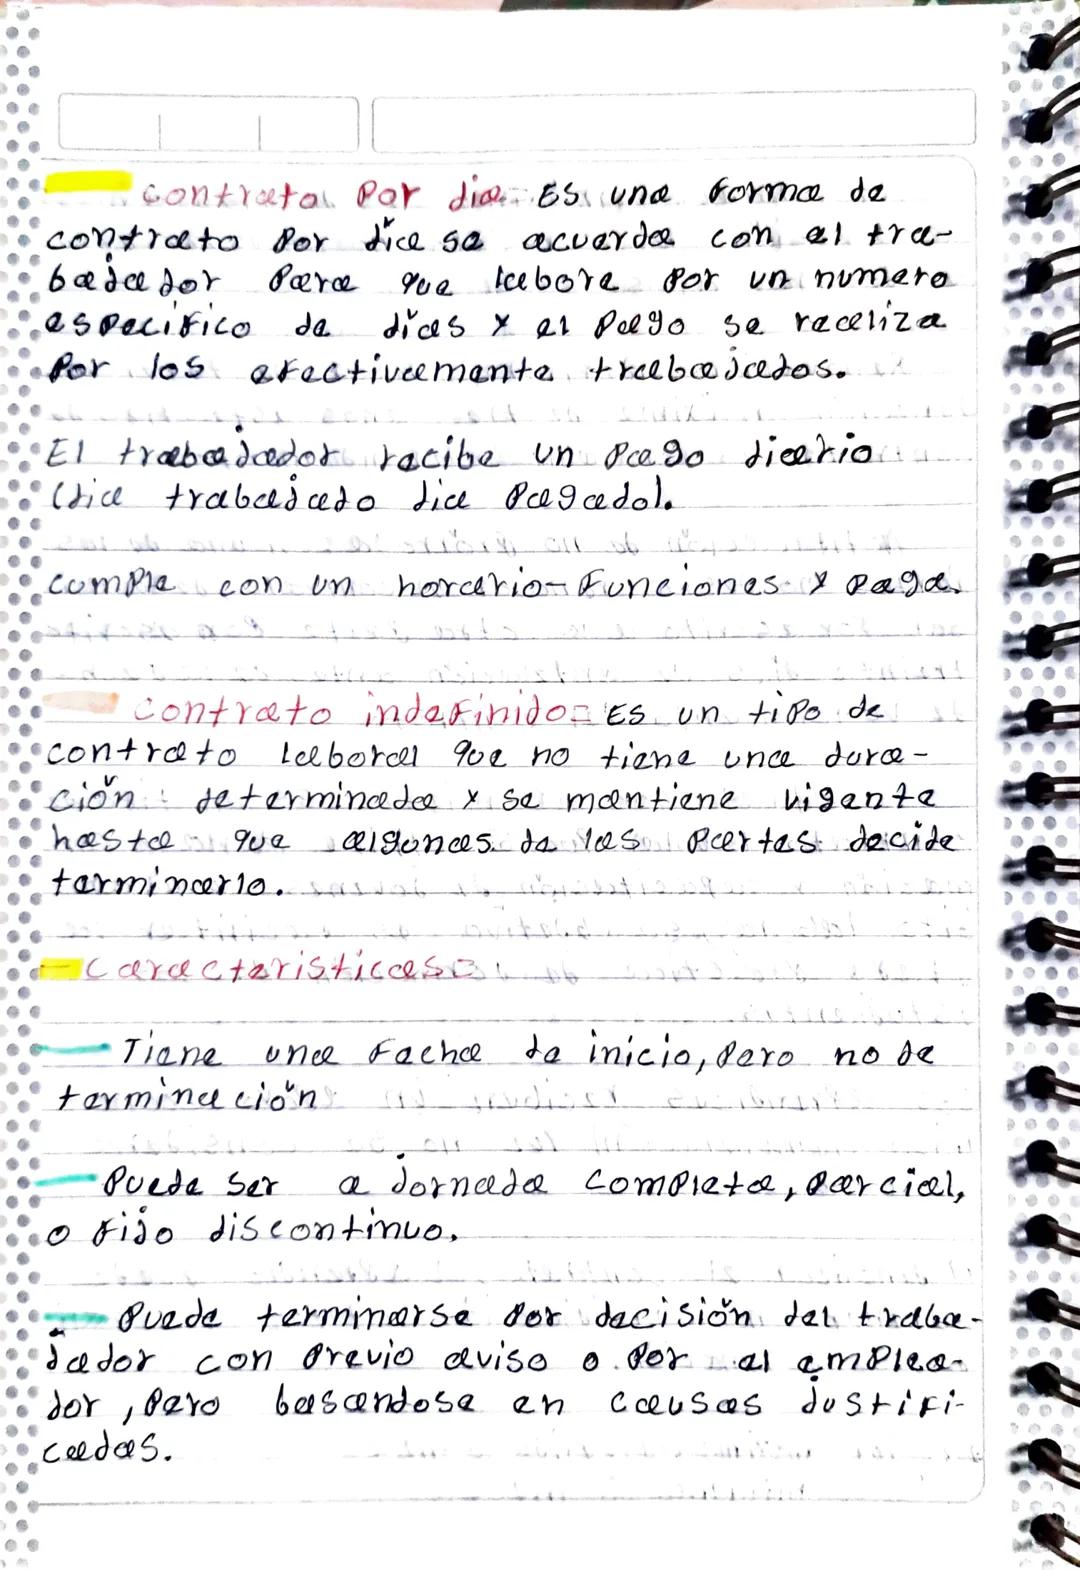 contrato Por dia- Es una forma de
contrato Por día se acuerda con el tra-
bajador Para que labore Por un numero
especifico de días y el Pago se realiza
Por los efectivamente trabajados.
El trabajador recibe un Pago diario
(dia trabajado dia Pagado).
cumple con un horario- Funciones y Paga.
contrato indefinido= Es un tipo de
contrato laboral que no tiene una dura-
ción determinada y se mantiene vigente
hasta que algunas de las Partes decide
terminarlo.
- caracteristicas=
- Tiene una Fecha de inicio, Pero no de
terminación
- Puede Ser a Jornada Completa, Parcial,
o fijo discontinuo.
- Puede terminarse Por decisión del traba-
jador con Previo aviso o Por el emplea-
dor, Pero basandose en Causas Justifi-
cadas.